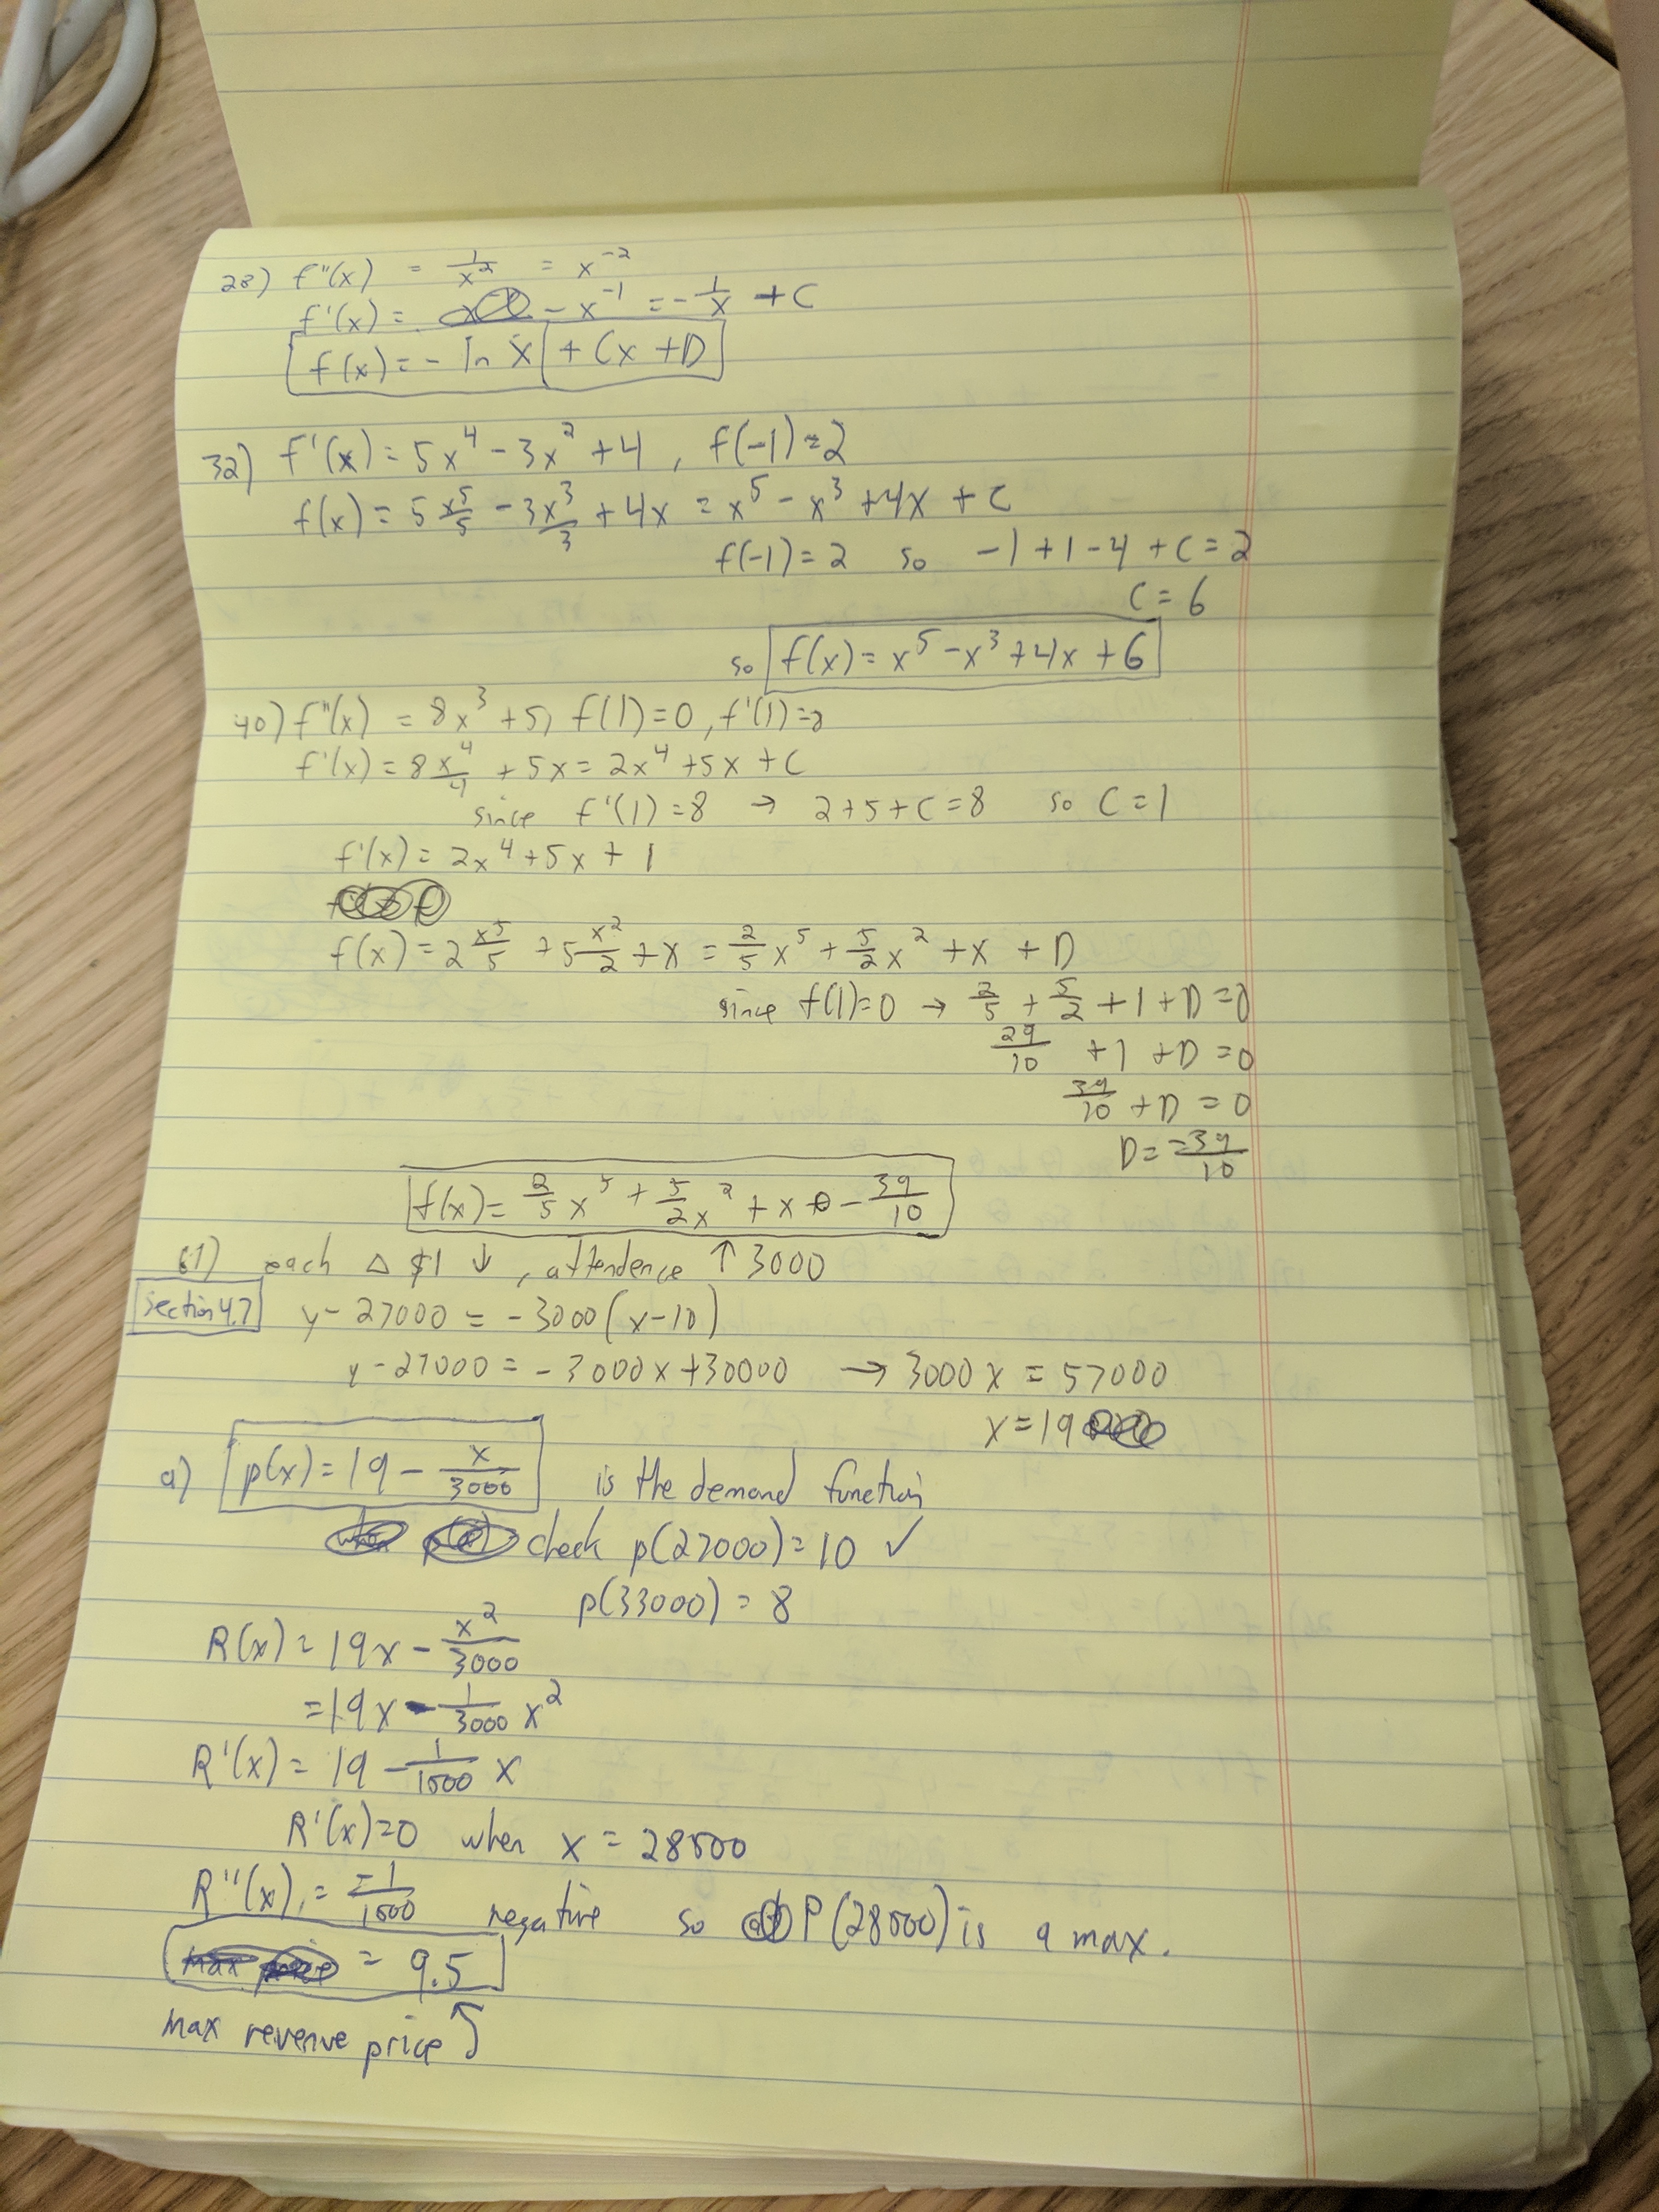 28) f"(x) = 1/x² = x⁻²
f'(x) = - x⁻¹ = - 1/x + C
f(x) = - ln x + Cx + D
32) f'(x) = 5x⁴ - 3x² + 4 , f(-1) = 2
f(x) = 5 x⁵/5 - 3 x³/3 + 4x = x⁵ - x³ + 4x + C
f(-1) = 2 so -1 + 1 - 4 + C = 2
C = 6
so f(x) = x⁵ - x³ + 4x + 6
40) f"(x) = 8x³ + 5, f(1) = 0, f'(1) = 8
f'(x) = 8 x⁴/4 + 5x = 2x⁴ + 5x + C
since f'(1) = 8 → 2 + 5 + C = 8 so C = 1
f'(x) = 2x⁴ + 5x + 1
f(x) = 2 x⁵/5 + 5 x²/2 + x = 2/5 x⁵ + 5/2 x² + x + D
since f(1) = 0 → 2/5 + 5/2 + 1 + D = 0
29/10 + 1 + D = 0
39/10 + D = 0
D = -39/10
f(x) = 2/5 x⁵ + 5/2 x² + x - 39/10
61) each Δ $1 ↓ , attendence ↑ 3000
section 4.7 y - 27000 = -3000 (x - 10)
y - 27000 = -3000x + 30000 → 3000x = 57000
x = 19
a) p(x) = 19 - x/3000 is the demand function
check p(27000) = 10 ✓
p(33000) = 8
R(x) = 19x - x²/3000
= 19x - 1/3000 x²
R'(x) = 19 - 1/1500 x
R'(x) = 0 when x = 28500
R"(x) = -1/1500 negative so P(28500) is a max.
= 9.5
max revenue price ↑